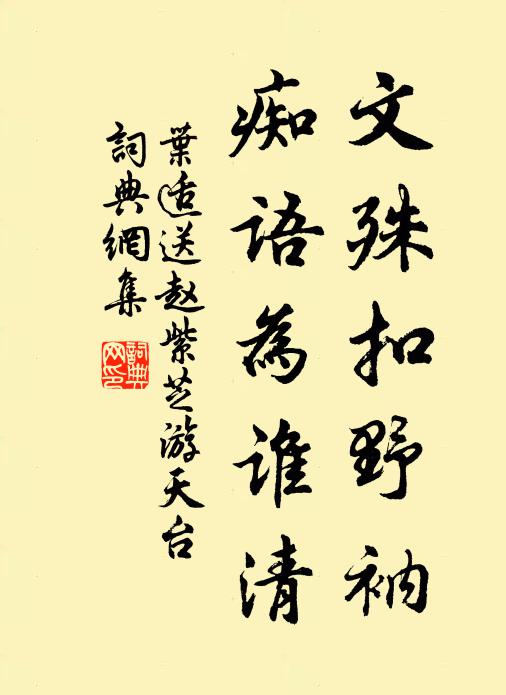 文殊扣野衲
痴语為谁清
葉适送赵紫芝游天台
詞典網集
詞典
网印